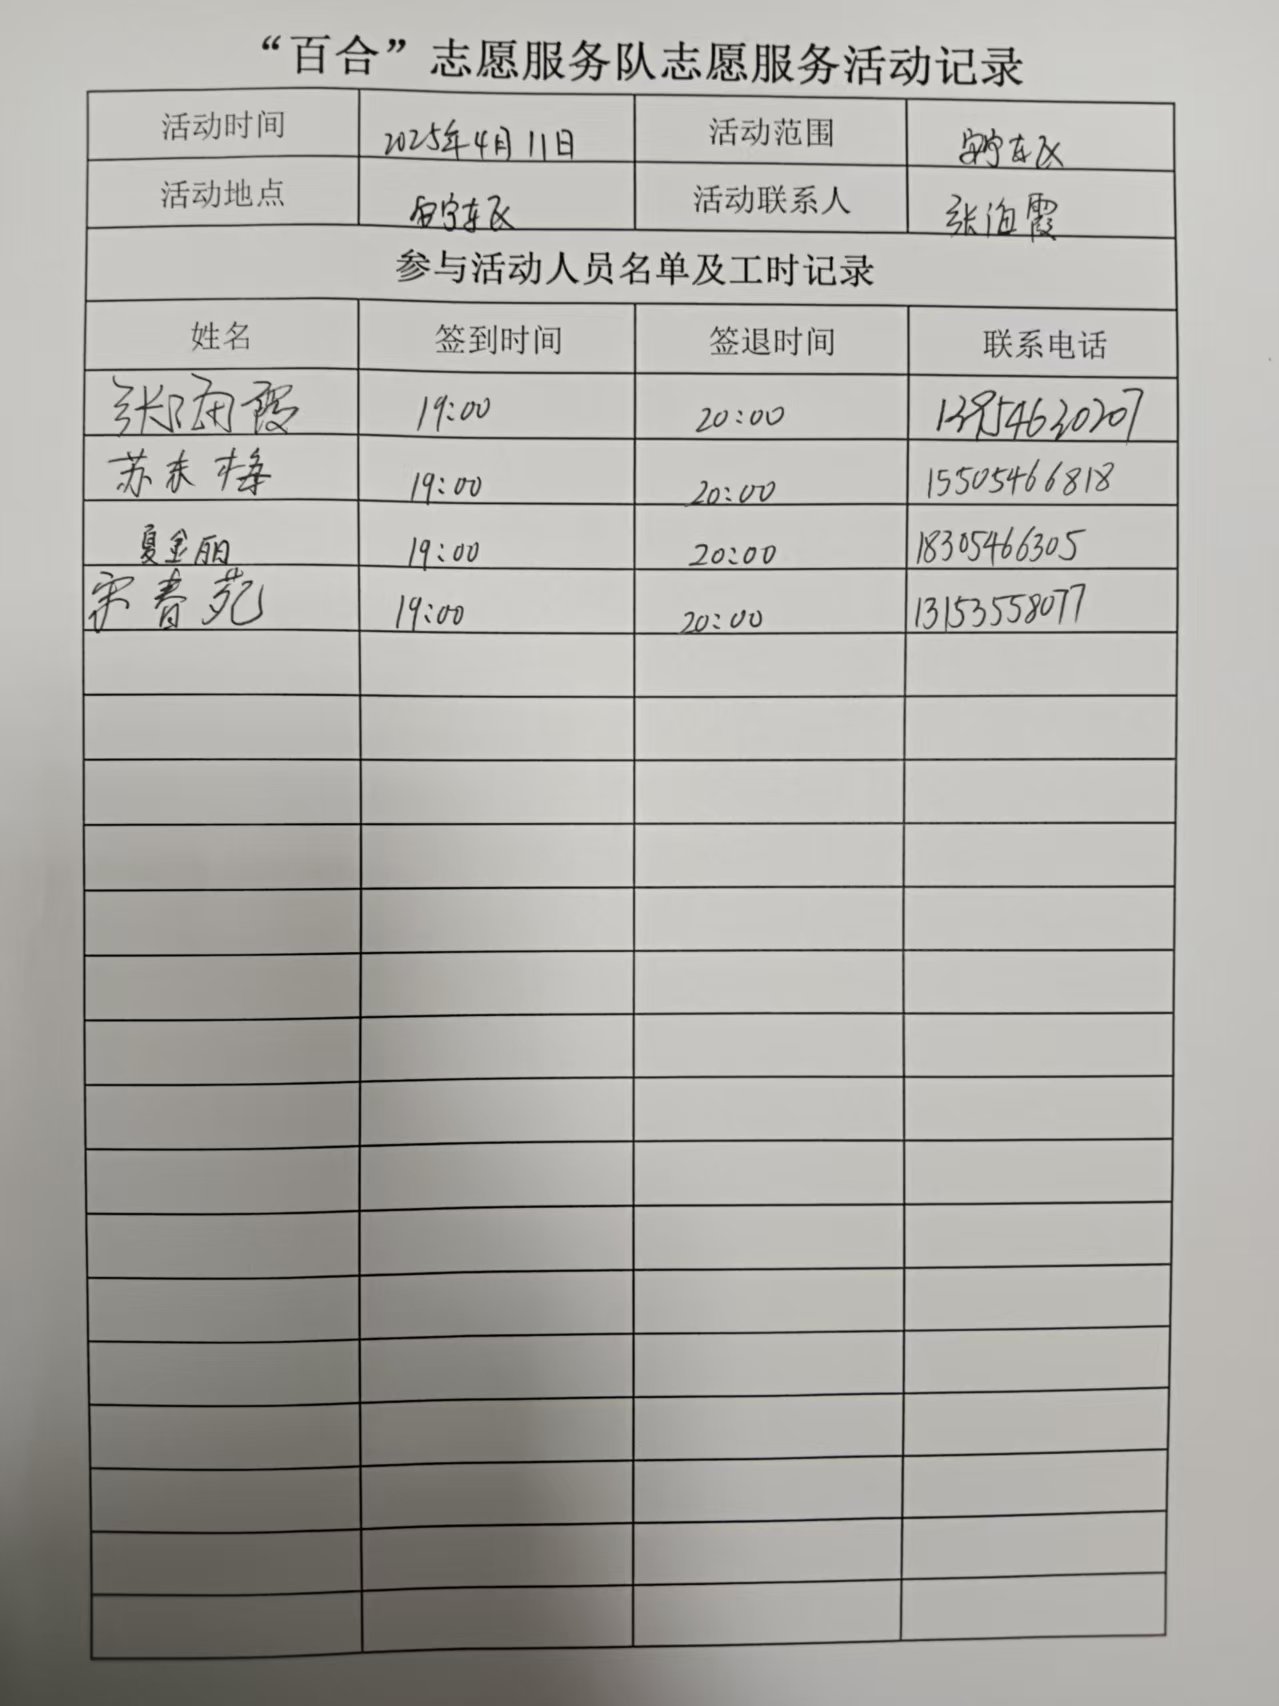 “百合”志愿服务队志愿服务活动记录
活动时间 2025年4月11日 活动范围 安宁东区
活动地点 西宁东区 活动联系人 张海霞
参与活动人员名单及工时记录
姓名 签到时间 签退时间 联系电话
张海霞 19:00 20:00
苏末梅 19:00 20:00 15505466818
夏金丽 19:00 20:00 18305466305
宋春苑 19:00 20:00 13153558077